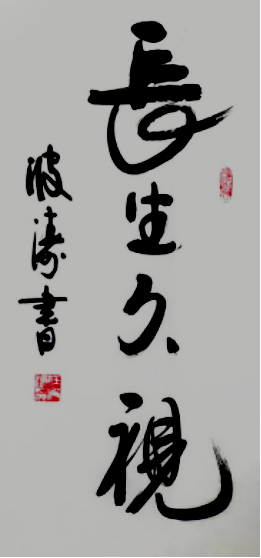 長生久視
波濤書